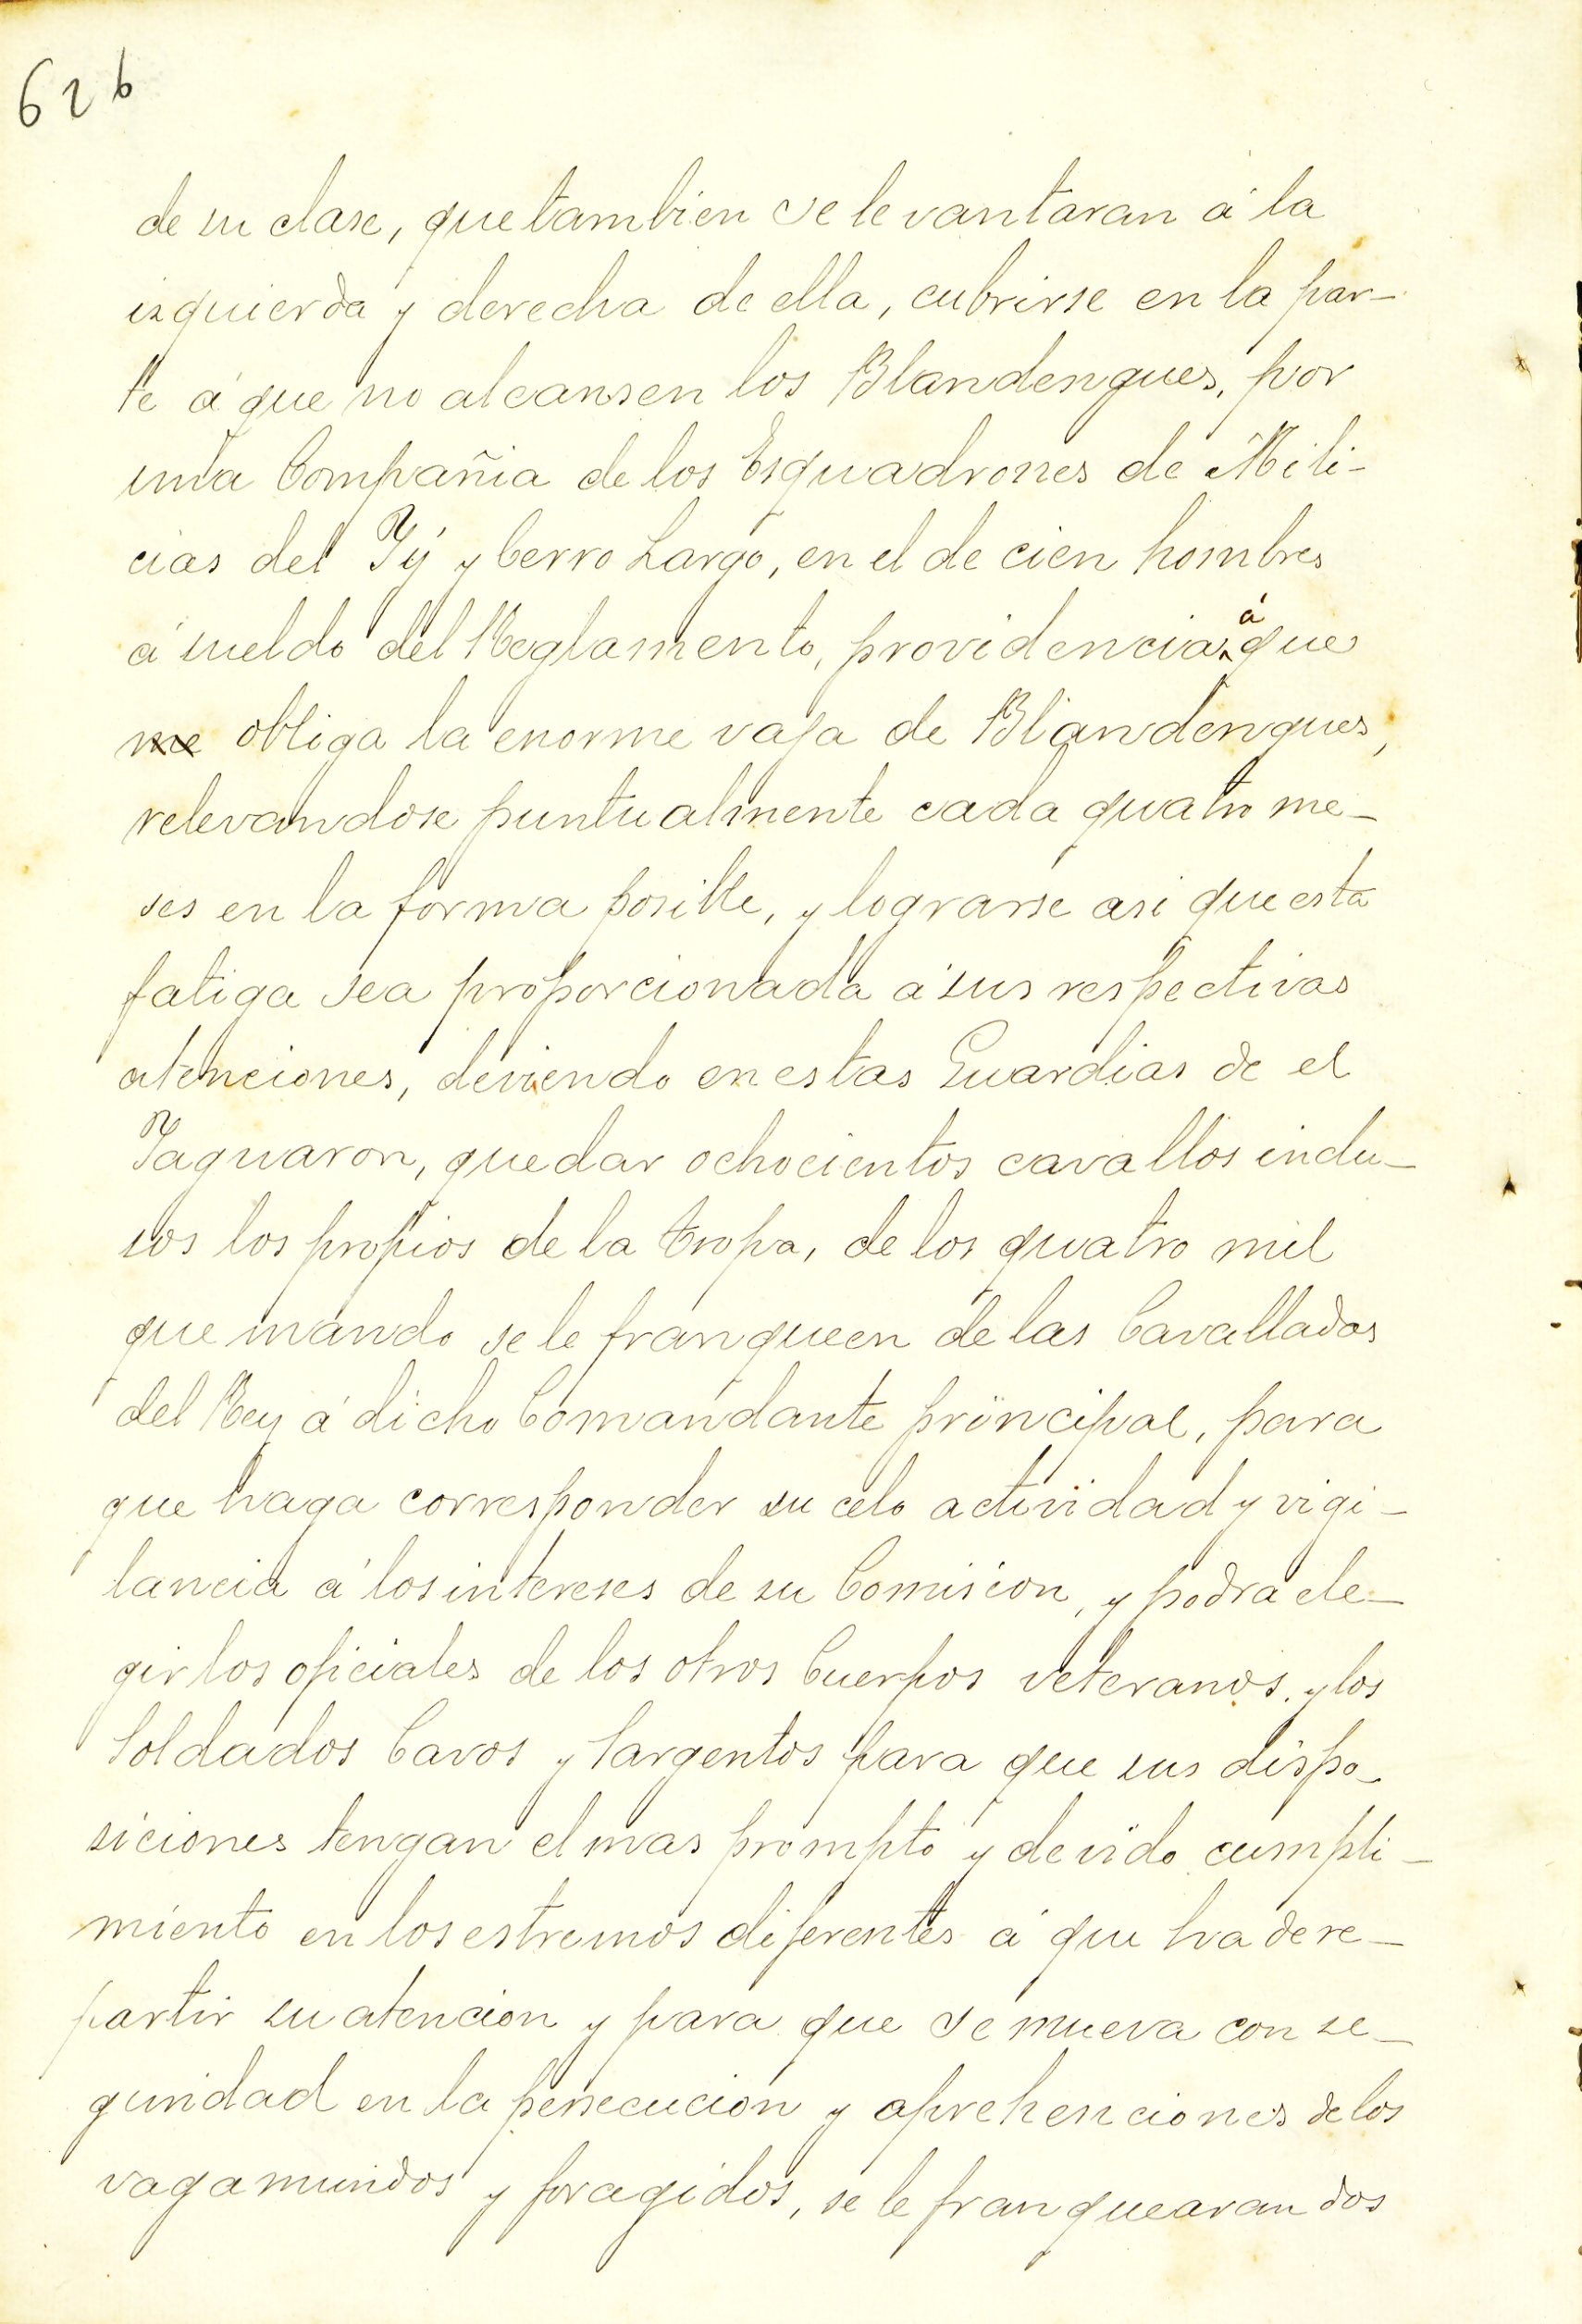 62 b
de su clase, que tambien se levantaran á la
izquierda y derecha de ella, cubrirse en la par-
te á que no alcansen los Blandengues, por
una Compañia de los Esquadrones de Mili-
cias del Yý y Cerro Largo, en el de cien hombres
á sueldo del Reglamento, providencia á que
me obliga la enorme vaja de Blandengues,
relevandose puntualmente cada quatro me-
ses en la forma posible, y lograrse asi que esta
fatiga sea proporcionada á sus respectivas
atenciones, deviendo en estas Guardias de el
Yaguaron, quedar ochocientos cavallos inclu-
sos los propios de la tropa, de los quatro mil
que mando se le franqueen de las Cavalladas
del Rey á dicho Comandante principal, para
que haga corresponder su celo actividad y vigi-
lancia á los intereses de su Comision, y podra ele-
gir los oficiales de los otros Cuerpos veteranos, y los
Soldados Cavos y Sargentos para que sus dispo-
siciones tengan el mas prompto y devido cumpli-
miento en los estremos diferentes á que ha de re-
partir su atencion y para que se mueva con se-
guridad en la persecucion y aprehenciones de los
vagamundos y foragidos, se le franquearan dos